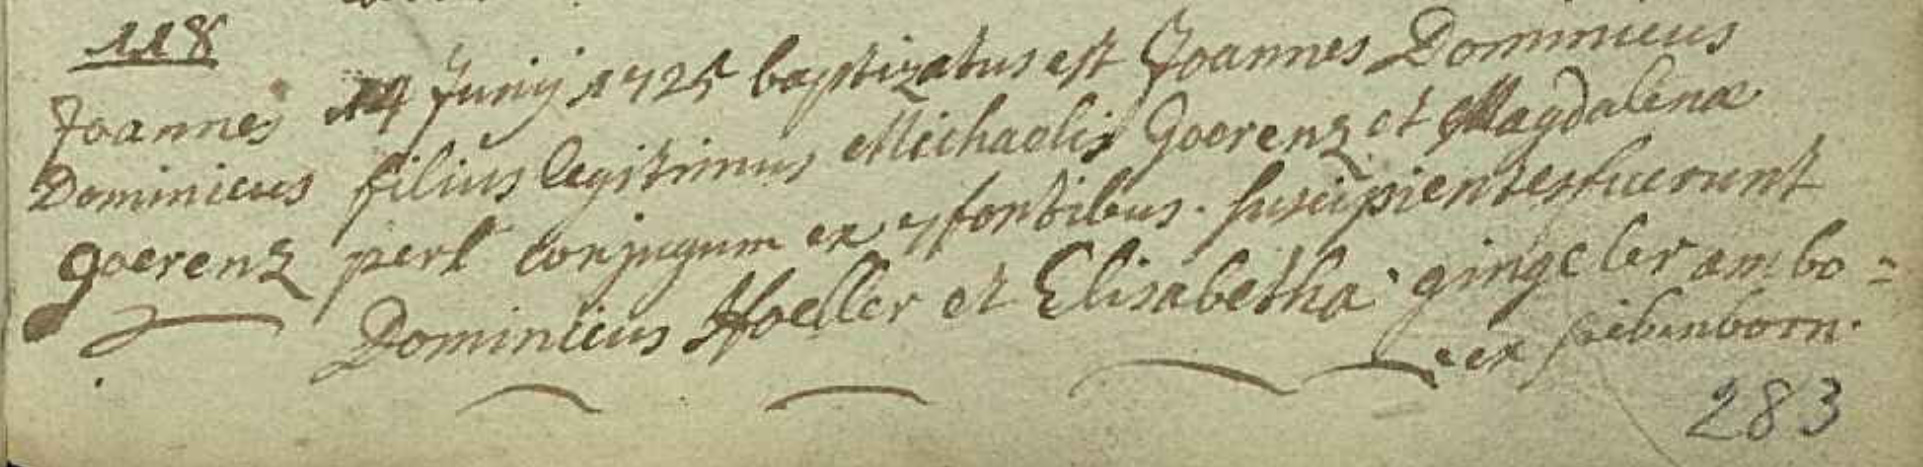 118
Joannes
Dominicus
goerenz
14 Junij 1725 baptizatus est Joannes Dominicus
filius legitimus Michaelis Goerenz et Magdalena
perl conjugum ex fontibus. suscipientes fuerunt
Dominicus Hoeller et Elisabetha gingeler ambo =
ex siebenborn.
283